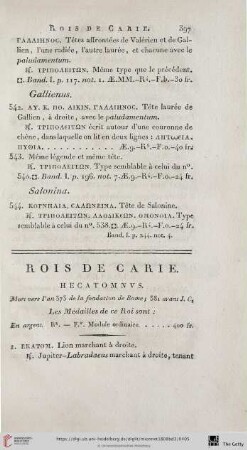 ROIS DE CARIE. 397
ΓΑΛΛΙΗΝΟΣ. Têtes affrontées de Valérien et de Gallien, l'une radiée, l'autre laurée, et chacune avec le
paludamentum.
℞. ΤΡΙΠΟΛΕΙΤΩΝ. Même type que le précédent.
Band. I. p. 117. not. 1. Æ.MM.-R⁴.-F.b.-30 fr.
Gallienus.
542. ΑΥ. Κ. ΠΟ. ΛΙΚΙΝ. ΓΑΛΛΙΗΝΟΣ. Tête laurée de
Gallien, à droite, avec le paludamentum.
℞. ΤΡΙΠΟΛΕΙΤΩΝ écrit autour d'une couronne de
chêne, dans laquelle on lit en deux lignes : ΛΗΤΩΕΙΑ.
ΠΥΘΙΑ. Æ.9.-R⁶.-F.o.-40 fr.
543. Même légende et même tête.
℞. ΤΡΙΠΟΛΕΙΤΩΝ. Type semblable à celui du n°.
540. Band. I. p. 196. not. 7. Æ.9.-R⁴.-F.o.-24 fr.
Salonina.
544. ΚΟΡΝΗΛΙΑ. ΣΑΛΩΝΕΙΝΑ. Tête de Salonine.
℞. ΤΡΙΠΟΛΕΙΤΩΝ. ΛΑΟΔΙΚΕΩΝ. ΟΜΟΝΟΙΑ. Type
semblable à celui du n°. 538. Æ.9.-R⁴.-F.o.-24 fr.
Band. I. p. 244. not. 4.
ROIS DE CARIE.
HECATOMNVS.
Mort vers l'an 375 de la fondation de Rome; 381 avant J. C.
Les Médailles de ce Roi sont :
En argent. R⁸. - F. Module ordinaire 400 fr.
1. ΕΚΑΤΟΜ. Lion marchant à droite.
℞. Jupiter-Labradaeus marchant à droite, tenant